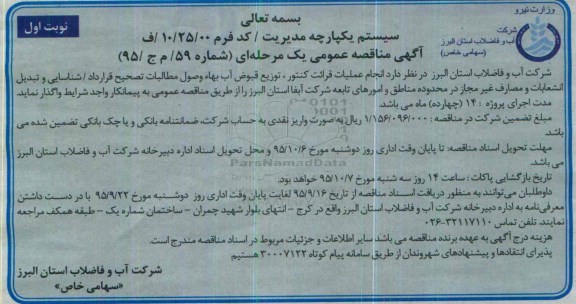 وزارت نیرو
بسمه تعالی
نوبت اول
شرکت
آب و فاضلاب استان البرز
(سهامی خاص)
سیستم یکپارچه مدیریت / کد فرم ۱۰/۲۵/۰۰/ف
آگهی مناقصه عمومی یک مرحله‌ای (شماره ۵۹/ م ج /۹۵)
شرکت آب و فاضلاب استان البرز در نظر دارد انجام عملیات قرائت کنتور، توزیع قبوض آب بهاء وصول مطالبات تصحیح قرارداد /شناسایی و تبدیل
انشعابات و مصارف غیر مجاز در محدوده مناطق و امورهای تابعه شرکت آبفا استان البرز را از طریق مناقصه عمومی به پیمانکار واجد شرایط واگذار نماید.
مدت اجرای پروژه : ۱۴ (چهارده) ماه می باشد.
مبلغ تضمین شرکت در مناقصه : ۱/۱۵۶/۰۹۶/۰۰۰ ریال به صورت واریز نقدی به حساب شرکت، ضمانتنامه بانکی و یا چک بانکی تضمین شده می
باشد.
مهلت تحویل اسناد مناقصه: تا پایان وقت اداری روز دوشنبه مورخ ۹۵/۱۰/۶ و محل تحویل اسناد اداره دبیرخانه شرکت آب و فاضلاب استان البرز می
باشد.
تاریخ بازگشایی پاکات : ساعت ۱۴ روز سه شنبه مورخ ۹۵/۱۰/۷ خواهد بود.
داوطلبان می‌توانند به منظور دریافت اسناد مناقصه از تاریخ ۹۵/۹/۱۶ لغایت پایان وقت اداری روز دوشنبه مورخ ۹۵/۹/۲۲ با در دست داشتن
معرفی‌نامه به اداره دبیرخانه شرکت آب و فاضلاب استان البرز واقع در کرج – انتهای بلوار شهید چمران – ساختمان شماره یک – طبقه همکف مراجعه
نمایند. تلفن تماس ۳۲۱۱۷۱۱۰-۰۲۶
هزینه درج آگهی به عهده برنده مناقصه می باشد سایر اطلاعات و جزئیات مربوط در اسناد مناقصه مندرج است.
پذیرای انتقادها و پیشنهادهای شهروندان از طریق سامانه پیام کوتاه ۳۰۰۰۷۱۲۲ هستیم
شرکت آب و فاضلاب استان البرز
«سهامی خاص»
ParsNamadData